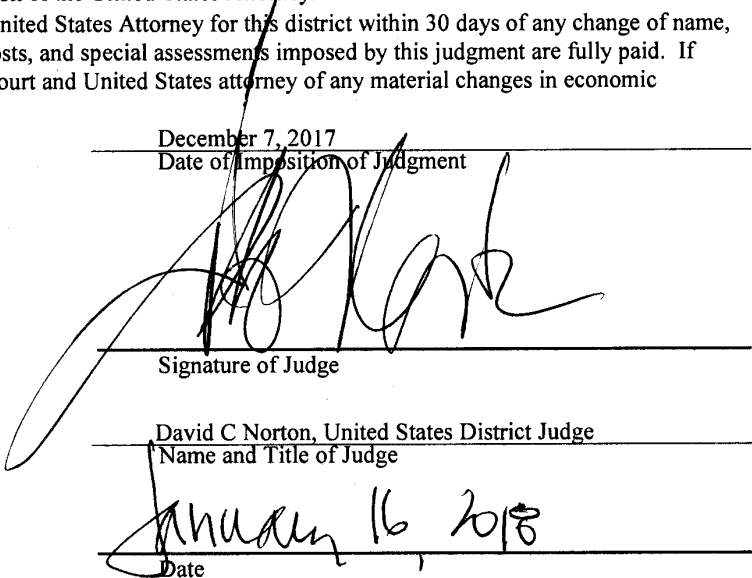 nited States Attorney for this district within 30 days of any change of name,
osts, and special assessments imposed by this judgment are fully paid. If
ourt and United States attorney of any material changes in economic
December 7, 2017
Date of Imposition of Judgment
Signature of Judge
David C Norton, United States District Judge
Name and Title of Judge
January 16, 2018
Date